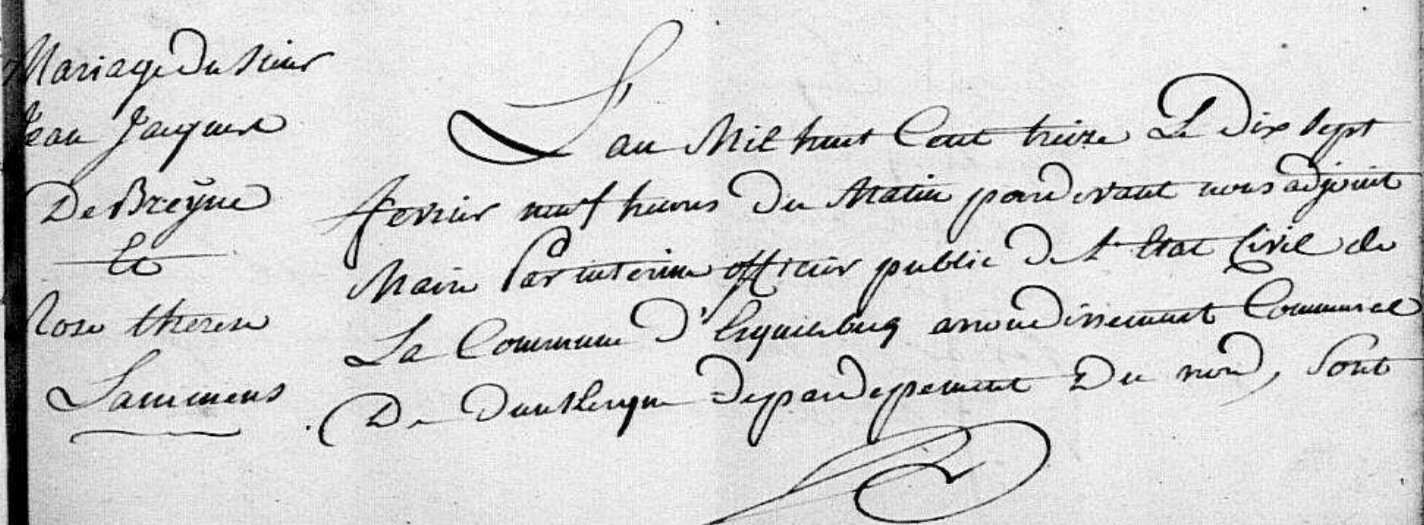 Mariage Du Sieur
Jean Jacques
De Breÿne
Et
Rose therese
Lammens
L'an Mil huit Cent treize Le Dix Sept
fevrier neuf heures Du Matin pardevant nous adjoint
Maire Par interime officier public De l'Etat Civil de
La Commune D'Erquinbecq arrondissement Communal
De Dunkerque Depardepement Du nord, Sont